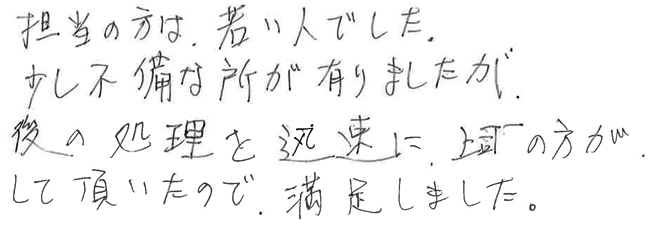 担当の方は、若い人でした。
少し不備な所が有りましたが、
後の処理を迅速に、上司の方が、
して頂いたので、満足しました。